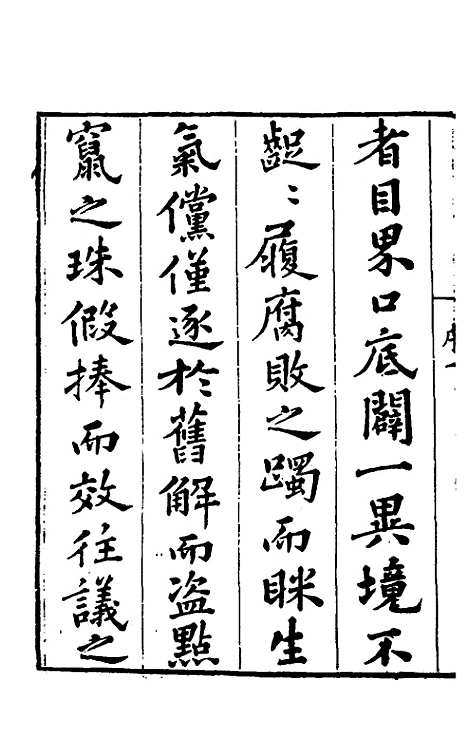 者目界口底闢一異境不
齪〻履腐敗之躅而眯生
氣儻僅逐於舊解而盗點
竄之珠假捧而效往議之